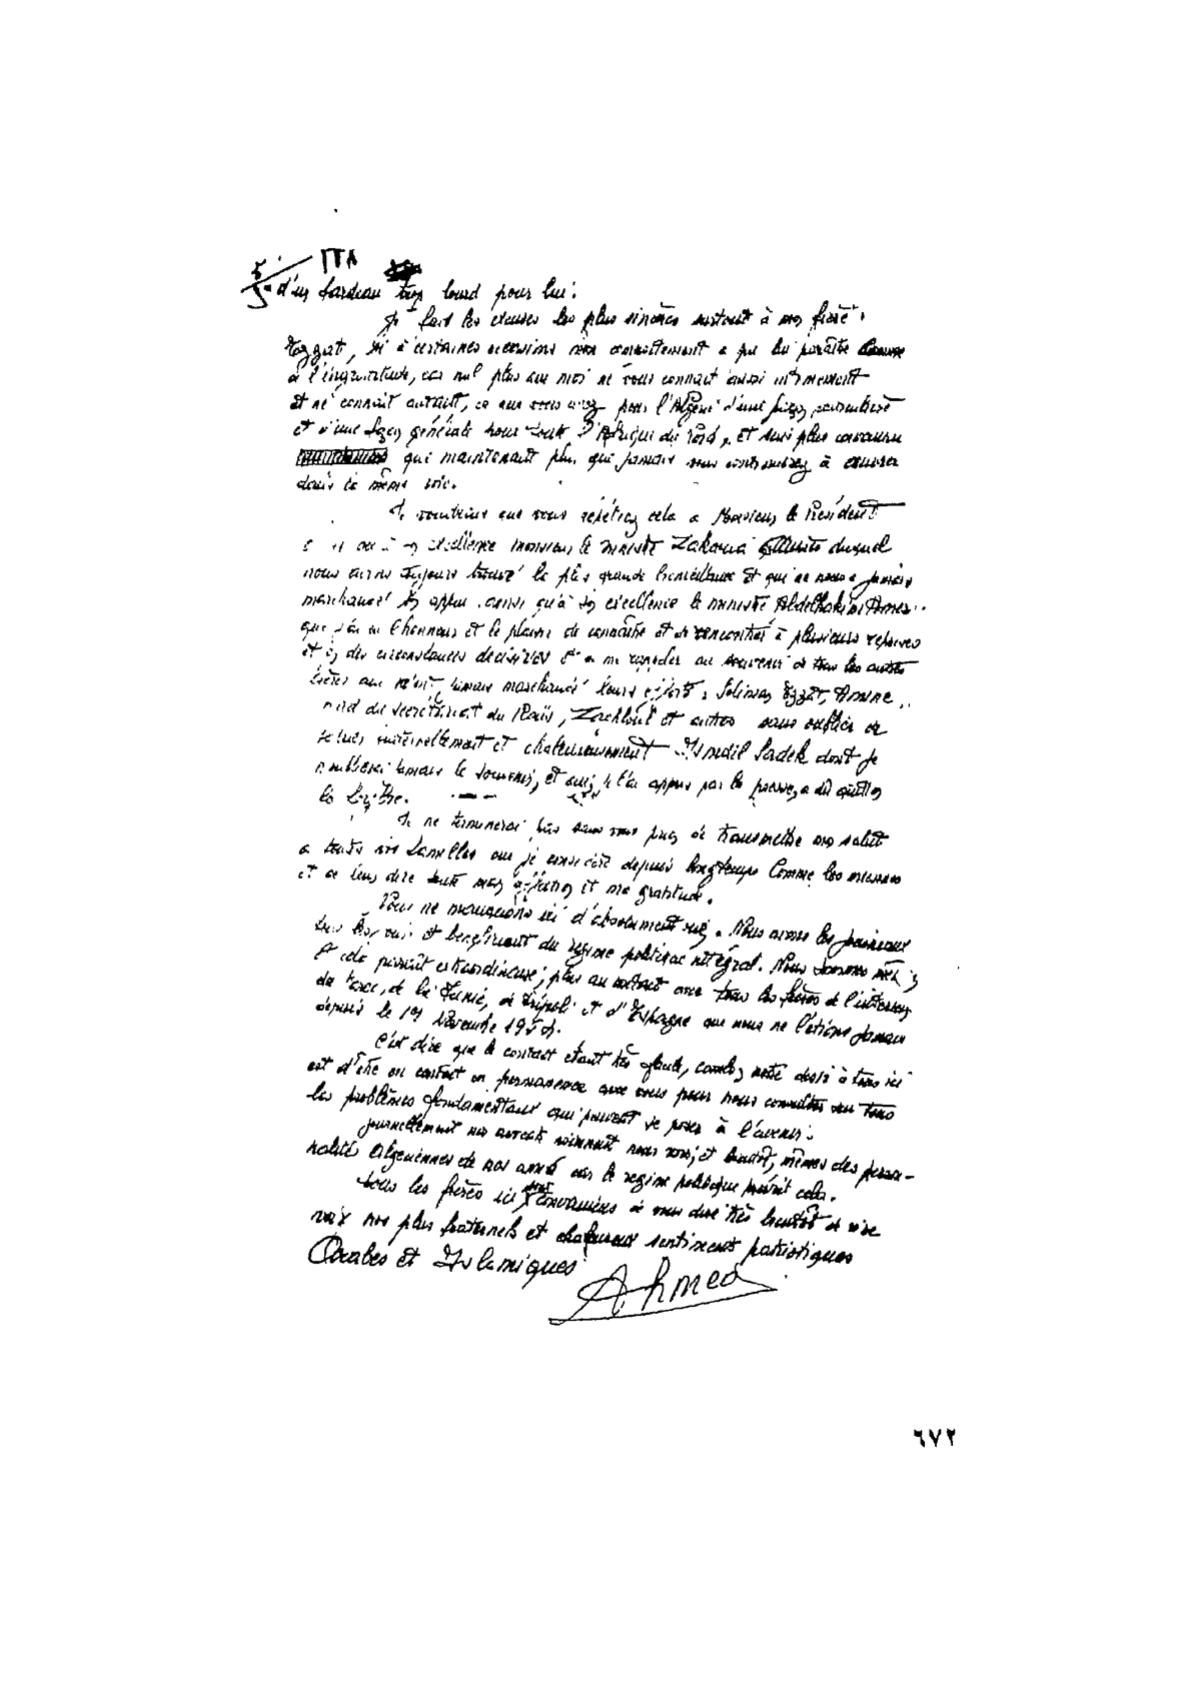 ٥/٥ ١٢٨
d'un fardeau trop lourd pour lui.
Je fait les excuses les plus sincères surtout à mon frère
Ezzat, si à certaines occasions mon comportement a pu lui paraître comme
à l'ingratitude, car nul plus que moi ne vous connait aussi intimement
et ne connait autant, ce que vous avez pour l'Algérie d'une façon particulière
et d'une façon générale pour toute l'Afrique du Nord, et suis plus convaincu
qui maintenant plus qui jamais vous continuerez à oeuvrer
dans la même voie.
Je voudrais que vous répétiez cela a Monsieur le Président
excellence monsieur le ministre Zakaria duquel
nous avons toujours trouvé la plus grande bienveillance et qui ne nous a jamais
marchandé son appui ainsi qu'à son excellence le ministre Abdelhakim Amer
que j'ai eu l'honneur et le plaisir de connaître et de rencontrer à plusieurs reprises
et en des circonstances décisives et a me rappeler au souvenir de tous les autres
frères qui n'ont jamais marchandé leurs efforts : Soliman Ezzat, Amine
du secrétariat du Raïs, Zachloul et autres sans oublier de
saluer fraternellement et chaleureusement Ismaïl Sadek dont je
n'oublierai jamais le souvenir, et qui, je l'ai appris par la presse, a dû quitter
la Syrie.
Je ne terminerai pas sans vous prier de transmettre mon salut
a toutes vos familles que je considère depuis longtemps comme les miennes
et de leur dire toute mon affection et ma gratitude.
Nous ne manquons ici d'absolument rien. Nous avons les journaux
et bénéficient du régime politique intégral. Nous sommes même
Et cela paraît extraordinaire, plus au contact avec tous les frères de l'intérieur
du Maroc, de la Tunisie, de Tripoli et d'Espagne que nous ne l'étions jamais
depuis le 1er Novembre 1954.
C'est dire que le contact étant très facile, combien notre désir à tous ici
est d'être en contact en permanence avec vous pour nous consulter sur tous
les problèmes fondamentaux qui peuvent se poser à l'avenir.
Journellement nos avocats viennent nous voir, et bientôt, mêmes des person-
nalités Algériennes de nos amis car le régime politique prévoit cela.
Tous les frères ici sont convaincus de vous dire très bientôt de vive
voix nos plus fraternels et chaleureux sentiments patriotiques
Arabes et Islamiques
Ahmed
٦٧٢